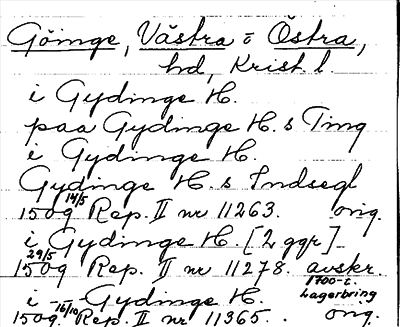 Göinge, Västra o Östra,
hd, Krist l.
i Gydinge H.
paa Gydinge H. s Ting
i Gydinge H.
Gydinge H. s Indsegl
1509 14/5 Rep. II nr 11263. orig.
i Gydinge H. [2 ggr]
1509 29/5 Rep. II nr 11278. avskr.
1700-t.
i Gydinge H. Lagerbring
1509 16/10 Rep. II nr 11365. orig.